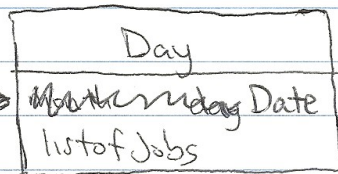 Day
Date
listofJobs